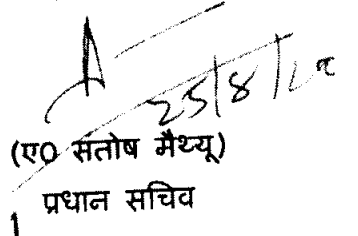 25/8/
(ए0 संतोष मैथ्यू)
प्रधान सचिव